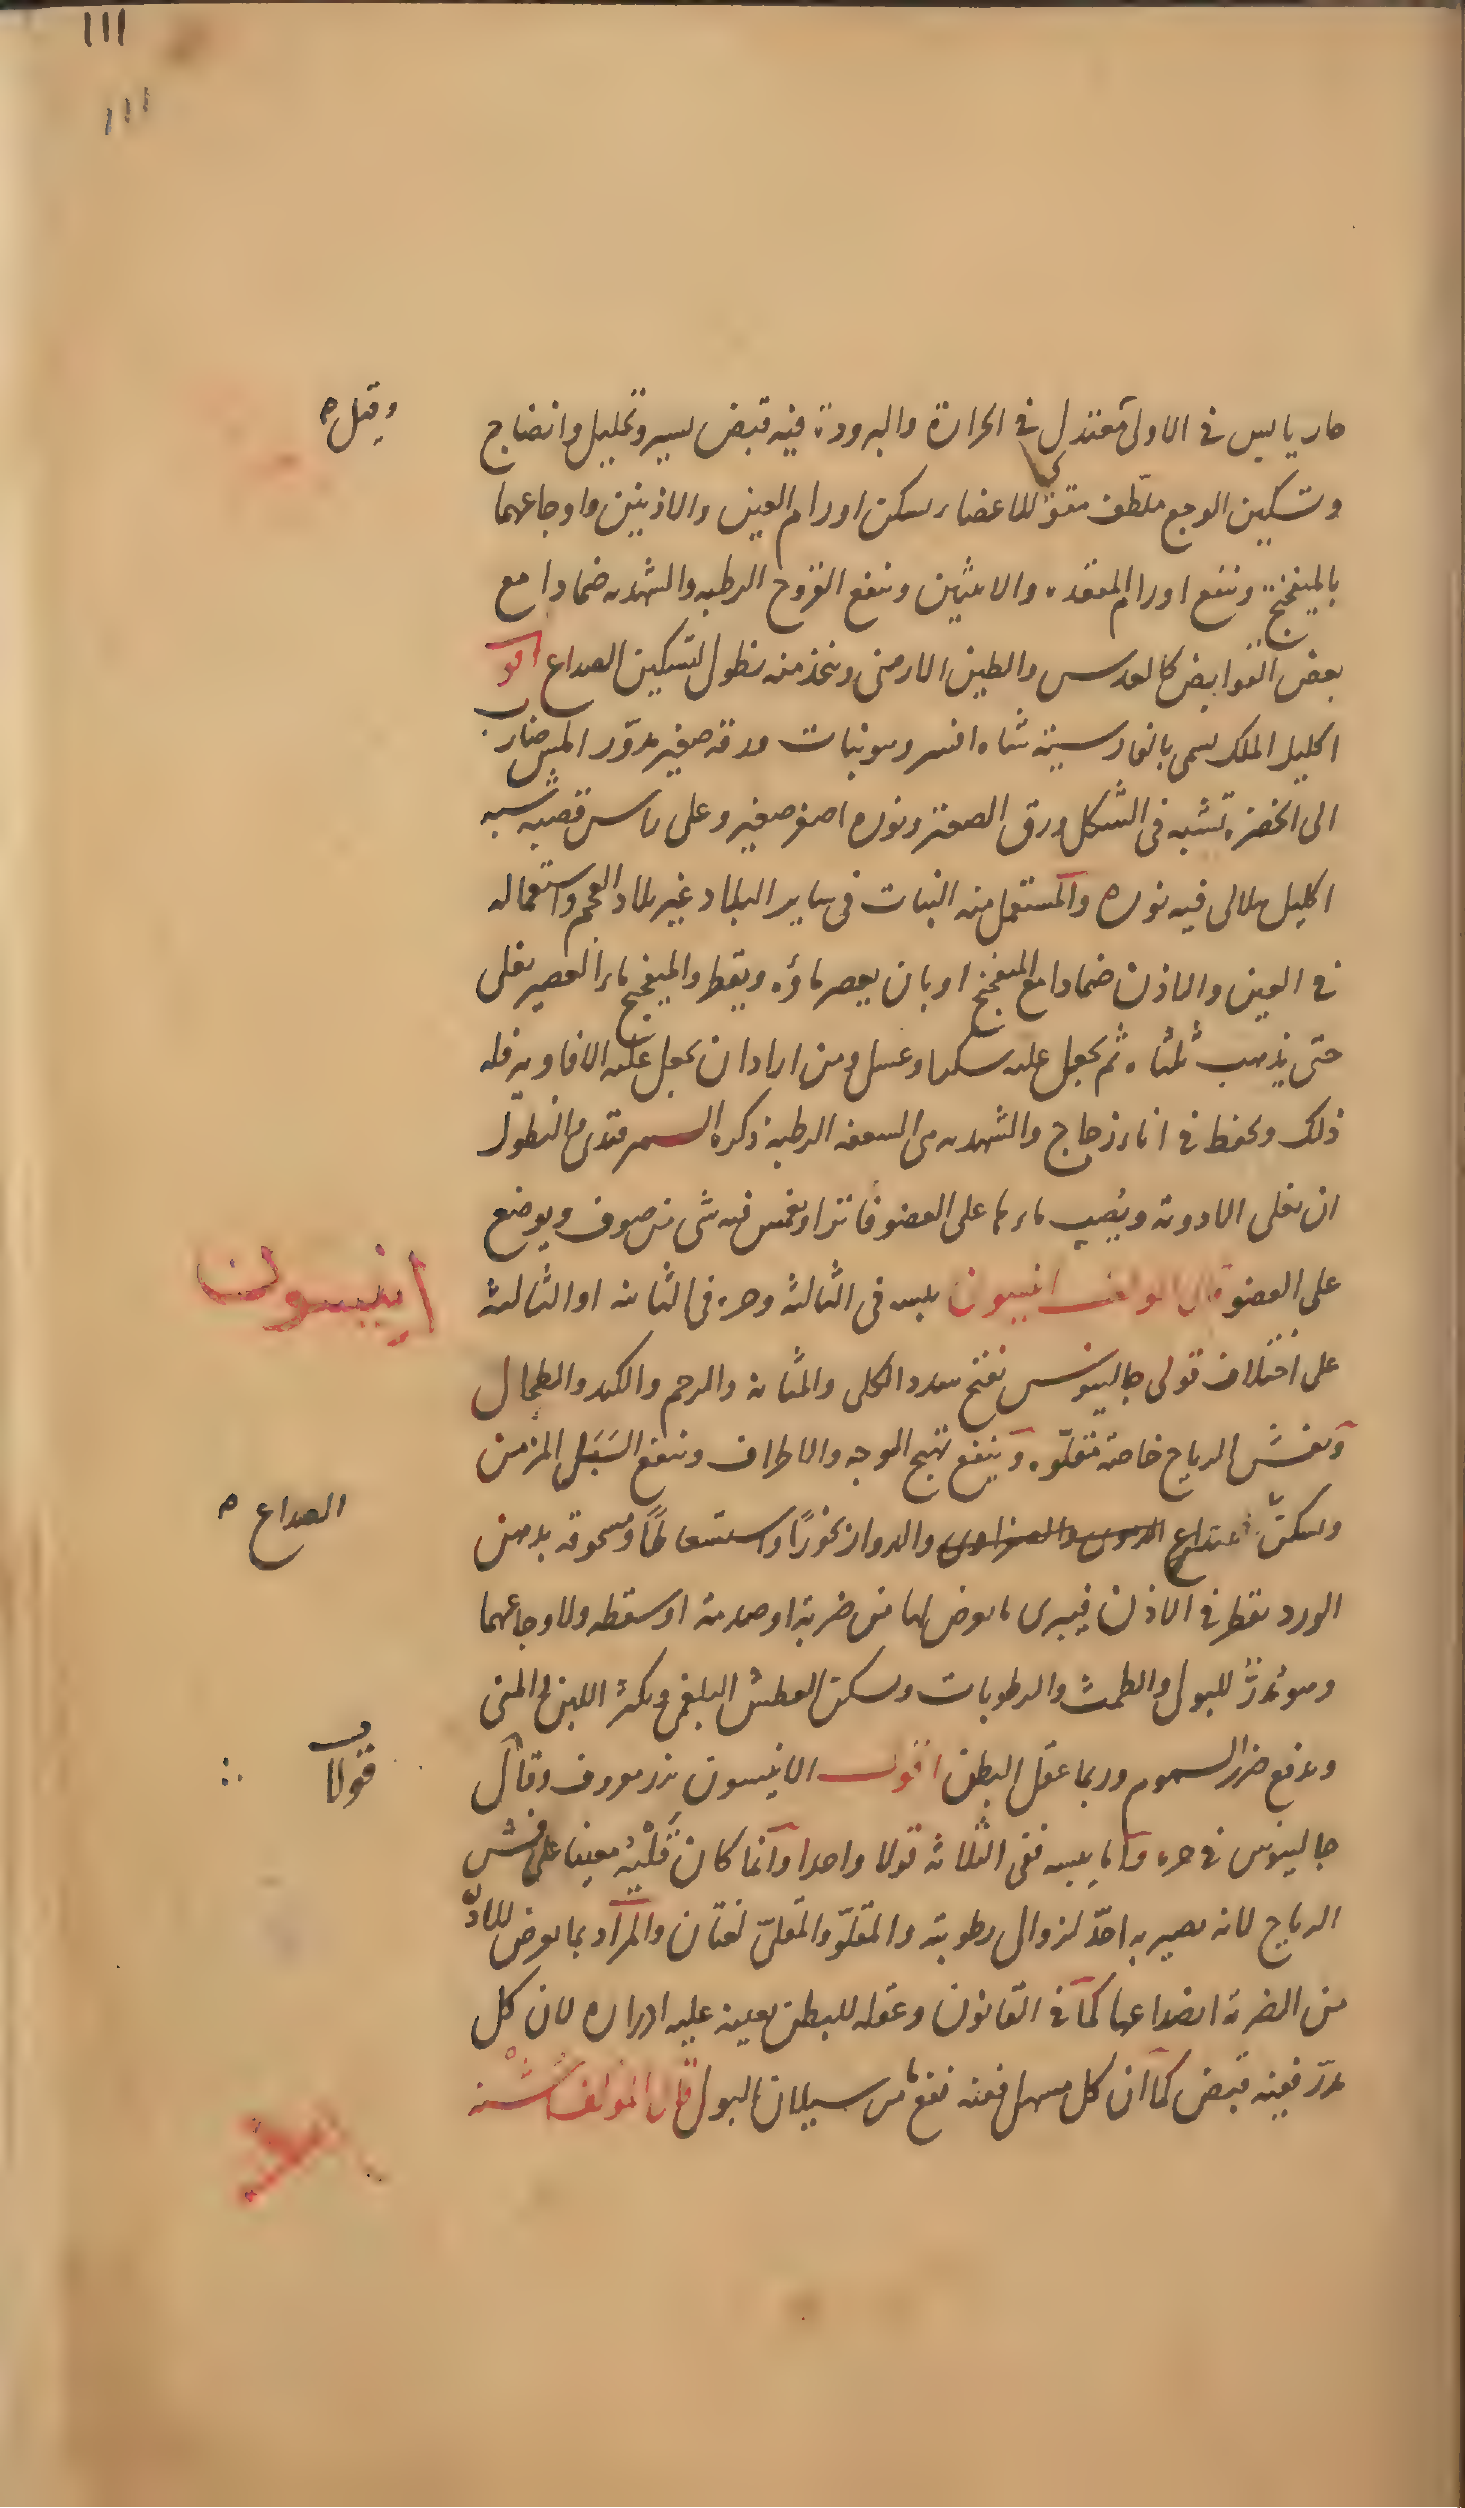 ١١١
١١١
حار يابس في الاولى معتدل في الحرارة والبرودة فيه قبض يسير وتحليل وانضاج
وقيل ه
وتسكين الوجع ملطف مقو للاعضاء يسكن اورام العين والاذنين واوجاعهما
بالميفختج وينفع اورام المقعدة والانثيين وينفع القروح الرطبه والشهديه ضمادا مع
بعض القوابض كالعدس والطين الارمني ويتخذ منه نطول لتسكين الصداع اقو
اكليل الملك يسمى بالفارسية شاه افسر وهو نبات ورقه صغير مدوّر املس ضارب
الى الخضرة تشبه في الشكل ورق الصعتر ونوره اصفر صغير وعلى راس قصبه شبه
اكليل هلالى فيه نوره والمستعمل منه النبات في ساير البلاد غير بلاد العجم واستعماله
في العين والاذن ضمادا مع الميفختج او بان يعصر ماؤه ويقطر والميفختج ماء العصير يغلى
حتى يذهب ثلثاه ثم يجعل عليه سكرا وعسل ومن اراد ان يجعل عليه الافاويه فله
ذلك ويحفظ في اناء زجاج والشهديه هي السعفه الرطبه ذكره السمرقندى والنطول
ان تغلى الادوية ويصب ماءها على العضو فاترا او يغمس فيه شى من صوف ويوضع
على العضو قال المولف انيسون يابس في الثالثة وحره في الثانيه او الثالثة
انيسون
على اختلاف قولى جالينوس تفتح سدد الكلى والمثانه والرحم والكبد والطحال
ويفش الرياح خاصة مقلوّه وينفع تهبج الوجه والاطراف وينفع السَبَل المزمن
ويسكن صداع والدوار بخورًا واستعاطًا ومسحوقه بدهن
الصداع ه
الورد تقطر في الاذن فيبرى ما يعرض لها من ضربة او صدمة او سقطه ولاوجاعهما
وهو مُدرٌّ للبول والطمث والرطوبات ويسكن العطش البلغمى ويكثر اللبن والمنى
ويدفع ضرر السموم وربما عقل البطن اقول الانيسون بزر معروف وقال
قولان
جالينوس في حره واما يبسه ففى الثلاثه قولا واحدا وانما كان قَلْيُه معينا على فش
الرياح لانه يصير به احدّ لزوال رطوبته والمقلوّ والمقلىّ لغتان والمراد بما يعرض للاذن
من الضربة انصداعها كما في القانون وعقله للبطن يعينه عليه ادراره لان كل
مدرّ ففيه قبض كما ان كل مسهل ففيه نفع من سيلان البول قال المولف اشنه